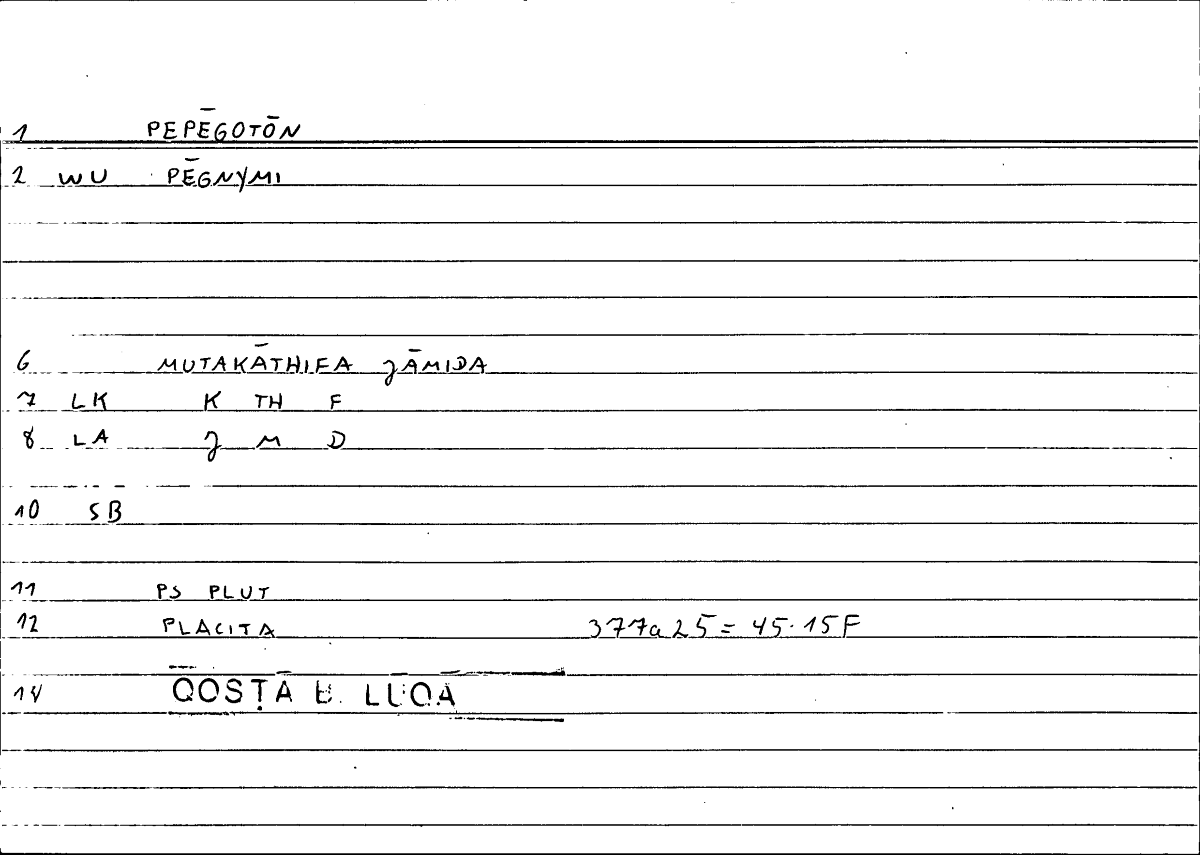 1 PEPĒGOTŌN
2 WU PĒGNYMI
6 MUTAKĀTHIFA JĀMIDA
7 LK K TH F
8 LA J M D
10 SB
11 PS PLUT
12 PLACITA 377a25 = 45.15F
14 QOSṬĀ B. LŪQĀ